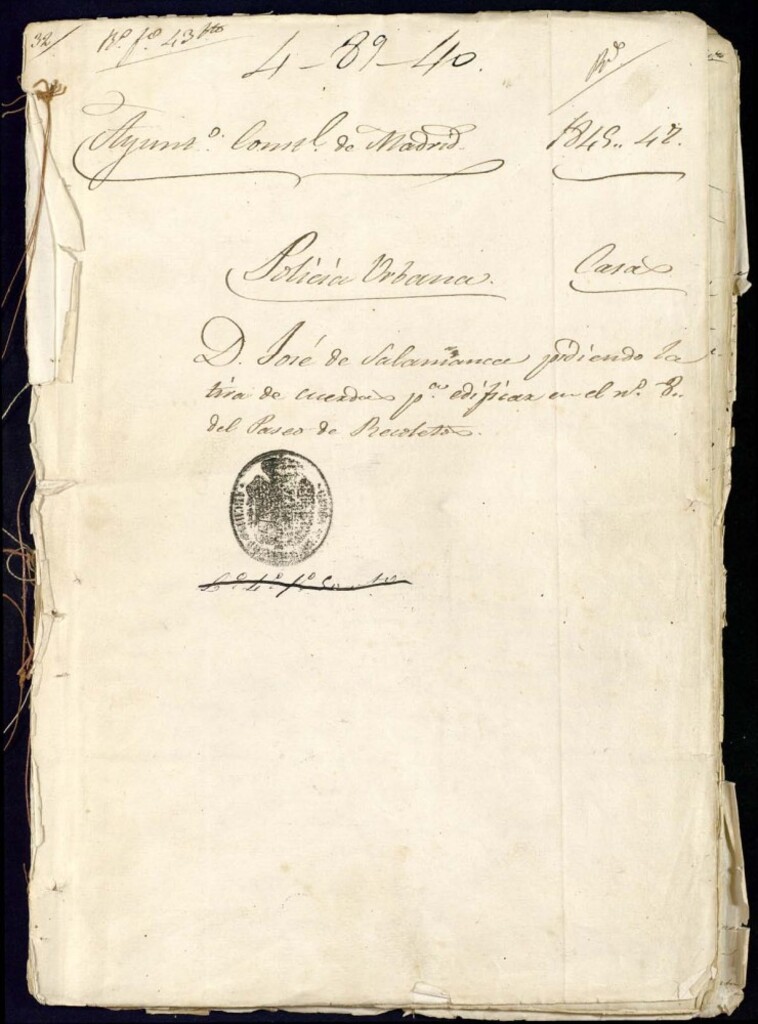 32/
R.º f.º 43 bto
4-89-40.
Ayunt.º Const.l de Madrid.
184 .. 47.
Policía Urbana.
Casas
D. José de Salamanca pidiendo la
tira de cuerdas p.ª edificar en el n.º 8..
del Paseo de Recoletos.